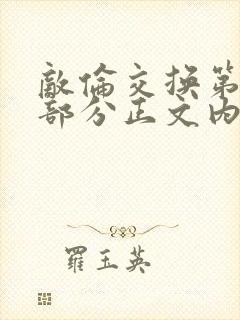 敵倫交換第
部分正文內
羅玉英